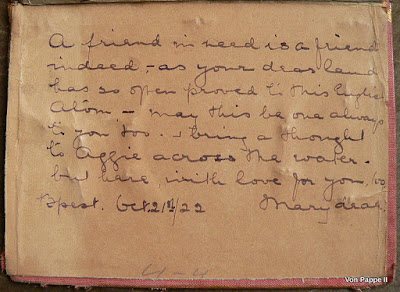 A friend in need is a friend
indeed,- as your dear land
has so open proved to this
Atom - may this be one always
to you too. & bring a thought
to Aggie across the water -
but here with love for you, too
Oct 21st/22 Mary dear.
4-4
Von Pappe II